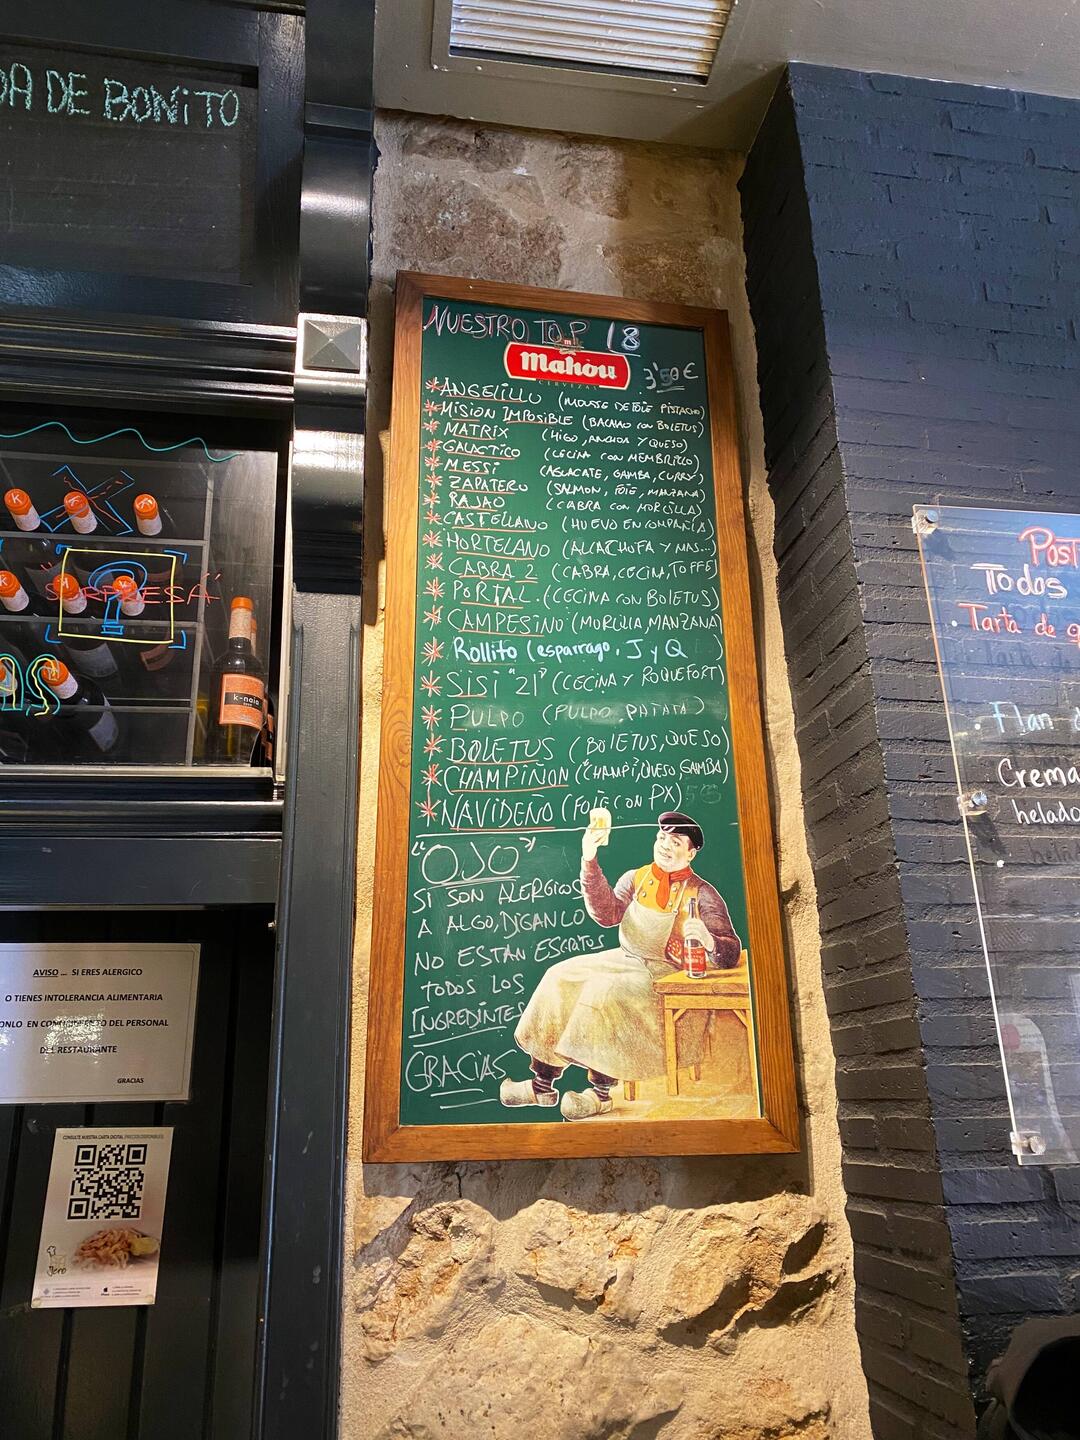 DA DE BONITO
NUESTRO TOP 18
Mahou
CERVEZAS
3'50€
*ANGELILLO (MOUSSE DE FOIE PISTACHO)
*MISION IMPOSIBLE (BACALAO CON BOLETUS)
*MATRIX (HIGO, ANCHOA Y QUESO)
*GALACTICO (CECINA CON MEMBRILLO)
*MESSI (AGUACATE, GAMBA, CURRY)
*ZAPATERO (SALMON, FOIE, MANZANA)
*RAJAO (CABRA CON MORCILLA)
*CASTELLANO (HUEVO EN COMPAÑIA)
*HORTELANO (ALCACHOFA Y MAS...)
*CABRA 2 (CABRA, CECINA, TOFFE)
*PORTAL (CECINA CON BOLETUS)
*CAMPESINO (MORCILLA, MANZANA)
*Rollito (esparrago, J y Q )
*SISI "21" (CECINA Y ROQUEFORT)
*PULPO (PULPO, PATATA)
*BOLETUS (BOLETUS, QUESO)
*CHAMPIÑON ("CHAMPI", QUESO, GAMBA)
*NAVIDEÑO (FOIE CON PX)
"OJO"
SI SON ALERGICOS
A ALGO, DIGANLO
NO ESTAN ESCRITOS
TODOS LOS
INGREDINTES
GRACIAS
SORPRESA
k-naia
AS
AVISO ... SI ERES ALERGICO
O TIENES INTOLERANCIA ALIMENTARIA
PONLO EN CONOCIMIENTO DEL PERSONAL
DEL RESTAURANTE
GRACIAS
CONSULTE NUESTRA CARTA DIGITAL (PRECIOS DISPONIBLES)
Jero
Post
Todos
Tarta de q
Flan d
Crema
helado